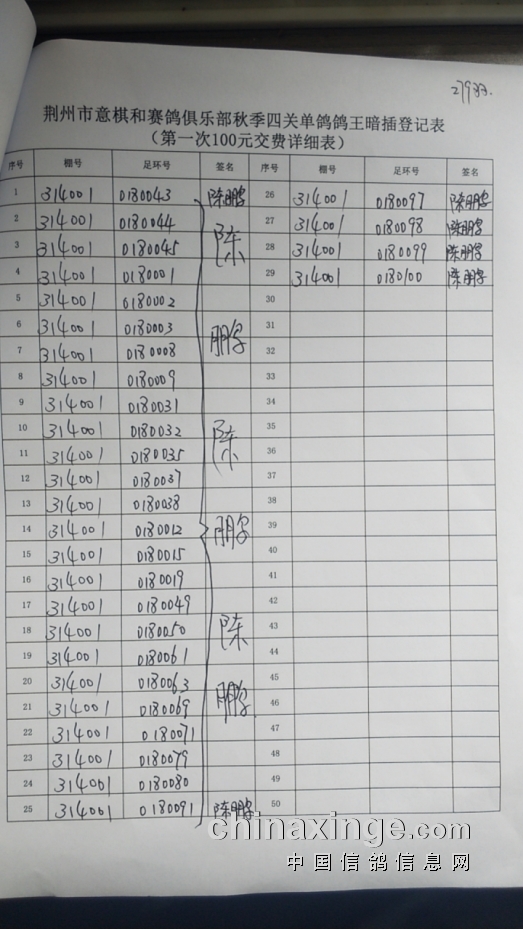 279羽.
荆州市意棋和赛鸽俱乐部秋季四关单鸽鸽王暗插登记表
（第一次100元交费详细表）
序号 棚号 足环号 签名 序号 棚号 足环号 签名
1 314001 0180043 陈鹏 26 314001 0180097 陈鹏
2 314001 0180044 陈 27 314001 0180098 陈鹏
3 314001 0180045 28 314001 0180099 陈鹏
4 314001 0180001 29 314001 0180100 陈鹏
5 314001 0180002 30
6 314001 0180003 鹏 31
7 314001 0180008 32
8 314001 0180009 33
9 314001 0180031 34
10 314001 0180032 陈 35
11 314001 0180035 36
12 314001 0180037 37
13 314001 0180038 38
14 314001 0180012 鹏 39
15 314001 0180015 40
16 314001 0180019 41
17 314001 0180049 42
18 314001 0180050 陈 43
19 314001 0180061 44
20 314001 0180063 45
21 314001 0180069 鹏 46
22 314001 0180071 47
23 314001 0180079 48
24 314001 0180080 49
25 314001 0180091 陈鹏 50
chinaxinge.com
中国信鸽信息网